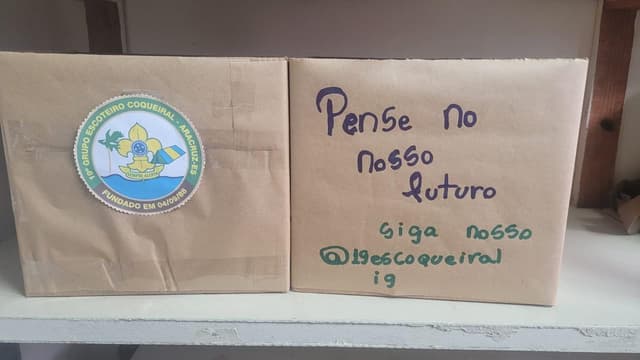 19º GRUPO ESCOTEIRO COQUEIRAL - ARACRUZ-ES
SEMPRE ALERTA
FUNDADO EM 04/09/85
Pense no
nosso
futuro
Siga nosso
@19escoqueiral
ig